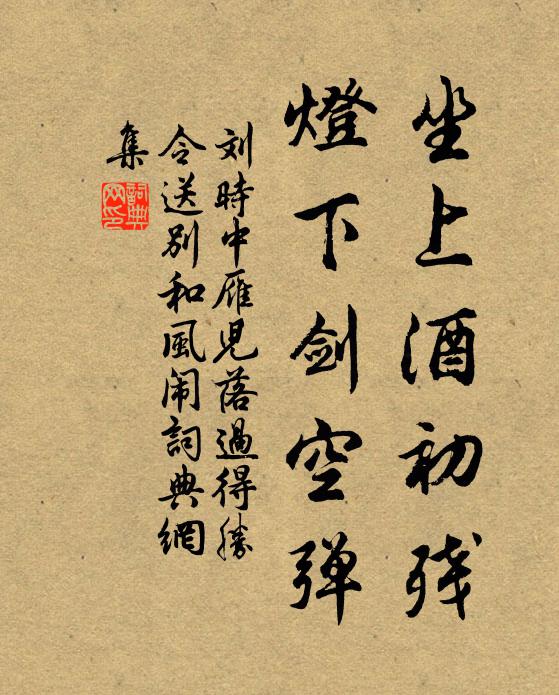 坐上酒初残
燈下剑空弹
刘時中雁児落過得勝
令送别和風闹詞典網
集
詞典
网印